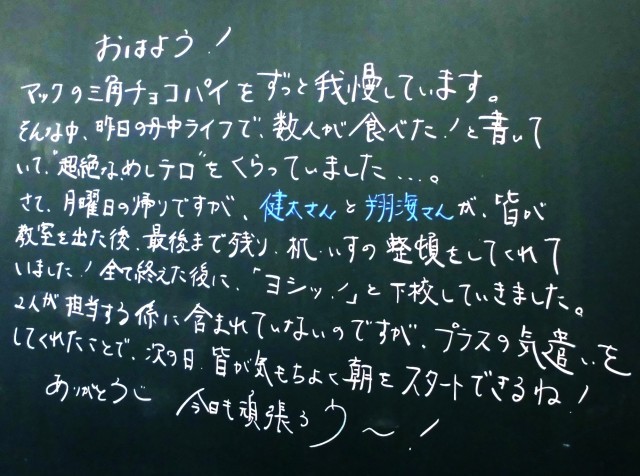 おはよう!
マックの三角チョコパイをずっと我慢しています。
そんな中、昨日の丹中ライフで、数人が「食べた!」と書いて
いて、"超絶なめしテロ"をくらっていました…。
さて、月曜日の帰りですが、健太さんと翔海さんが、皆が
教室を出た後、最後まで残り、机・いすの整頓をしてくれて
いました!全て終えた後に、「ヨシッ!」と下校していきました。
2人が担当する係に含まれていないのですが、プラスの気遣いを
してくれたことで、次の日、皆が気もちよく朝をスタートできるね!
ありがとう
今日も頑張ろう〜!